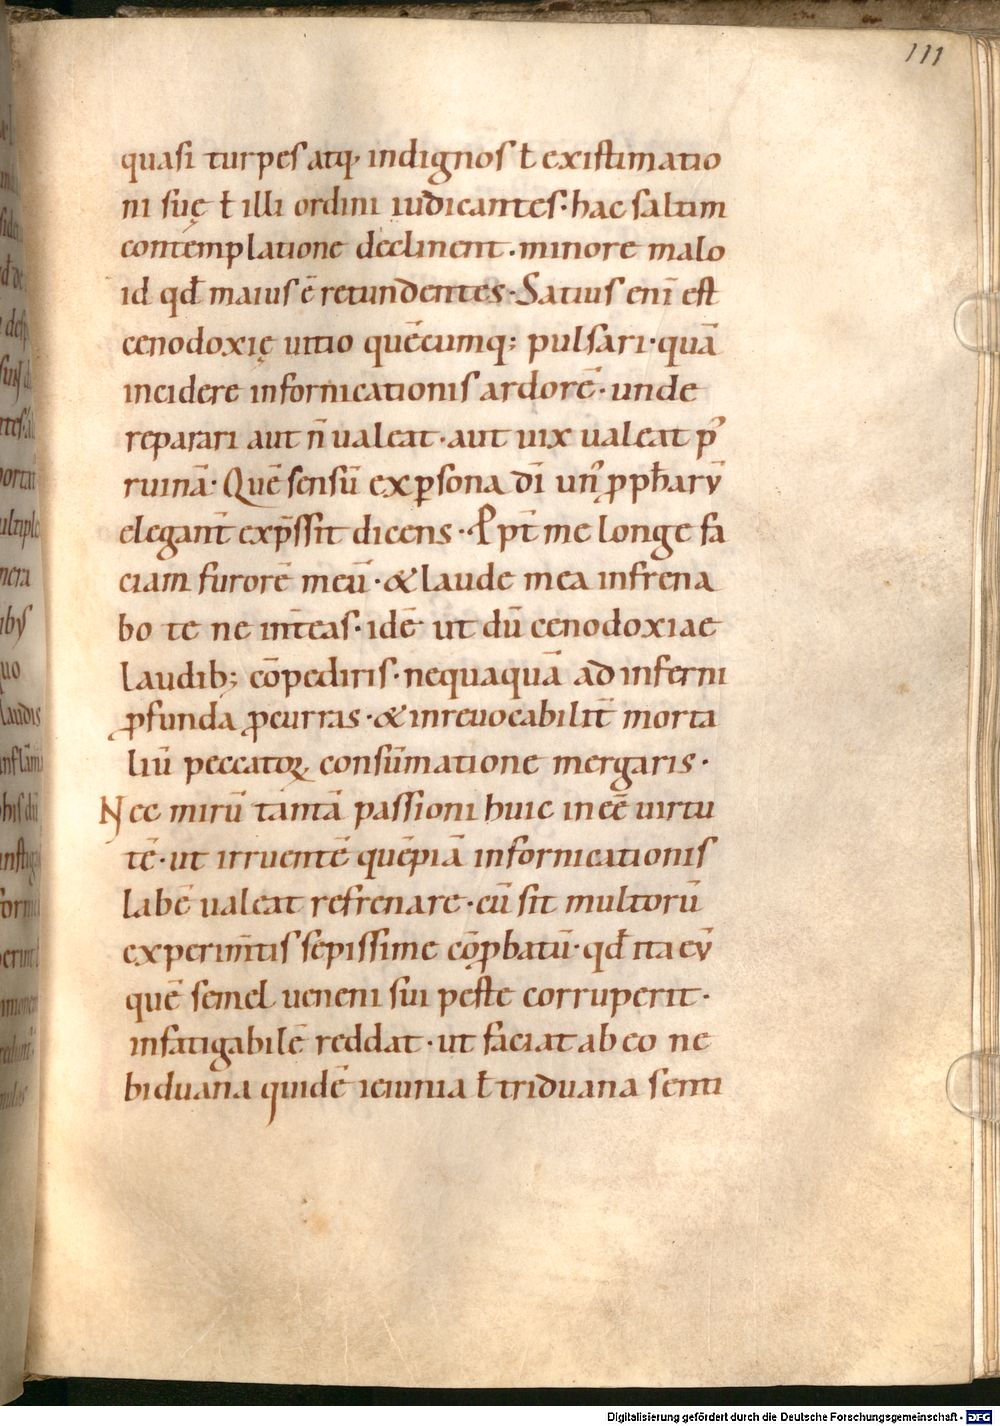 111
quasi turpes atq; indignos ł existimatio
ni suę ł illi ordini iudicantes· hac saltim
contemplatione declinent· minore malo
id qđ maius ē retundentes· Satius enī est
cenodoxię uitio quēcumq; pulsari· quā
incidere in fornicationis ardorē· unde
reparari aut ñ ualeat· aut uix ualeat p᾽
ruinā· Quē sensū ex ꝑsona dī un᾽ ꝓph̄arū
elegant̄ exp̄ssit dicens· Ꝓpt̄ me longe fa
ciam furorē meū· & laude mea infrena
bo te ne int̄eas· idē ut dū cenodoxiae
laudib; cōpediris· nequaquā ad inferni
ꝓfunda ꝓcurras· & inreuocabilit̄ morta
liū peccatoꝝ consūmatione mergaris·
Nec mirū tantā passioni huic ineē uirtu
tē· ut irruentē quēpiā in fornicationis
labē ualeat refrenare· cū sit multorū
experim̄tis sepissime cōꝓbatū· qđ ita eū
quē semel ueneni sui peste corruperit·
infatigabilē reddat· ut faciat ab eo ne
biduana quidē ieiunia ł triduana senti
Digitalisierung gefördert durch die Deutsche Forschungsgemeinschaft - DFG